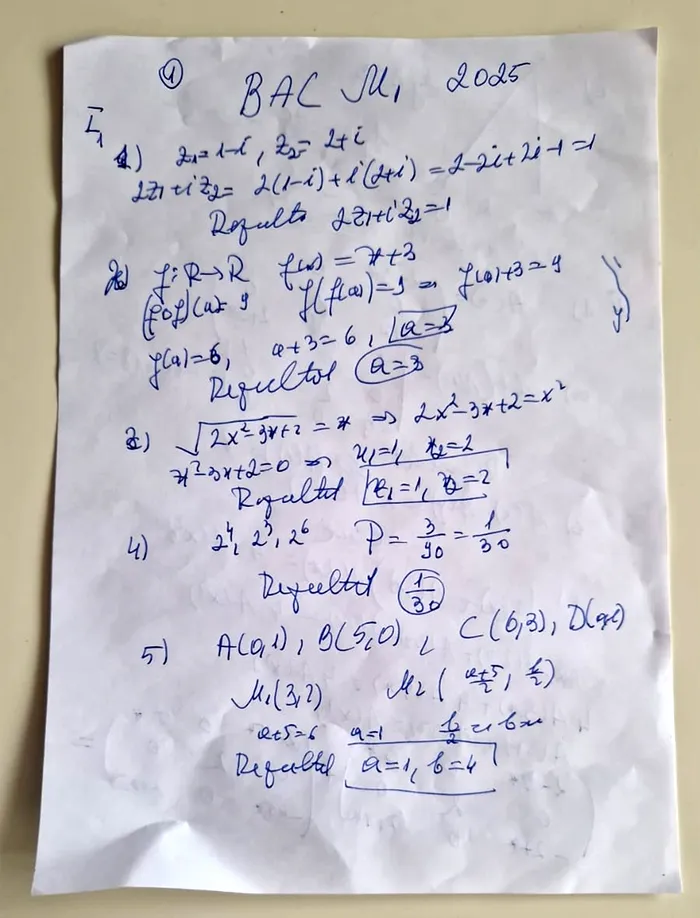 ①
BAC M₁ 2025
I₁
1) z₁=1-i, z₂=2+i
2z₁+iz₂= 2(1-i)+i(2+i)=2-2i+2i-1=1
Rezultă 2z₁+iz₂=1
2) f:R→R f(x)=x+3
(fof)(a)=9 f(f(a))=9 ⇒ f(a)+3=9
f(a)=6, a+3=6, a=3
Rezultă a=3
3) √2x²-3x+2 = x ⇒ 2x²-3x+2=x²
x²-3x+2=0 ⇒ x₁=1, x₂=2
Rezultă x₁=1, x₂=2
4) 2⁴, 2⁵, 2⁶ P=3/90=1/30
Rezultă 1/30
5) A(0,1), B(5,0), C(6,3), D(a,b)
M₁(3,2) M₂(a+5/2, b/2)
a+5=6 a=1 b/2
Rezultă a=1, b=4